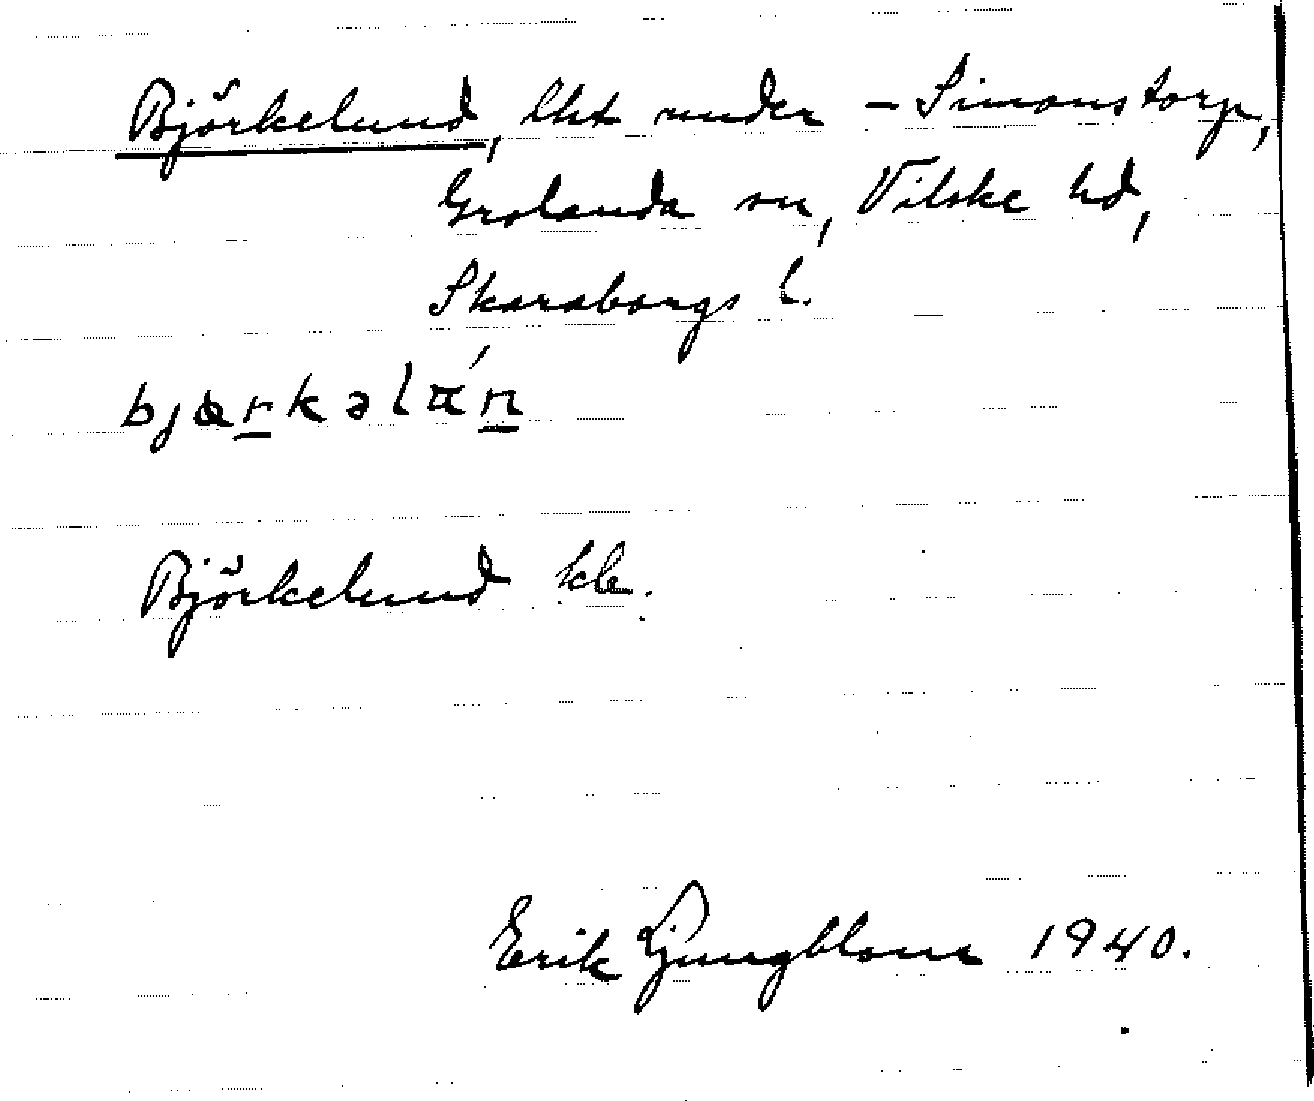 Björkelund, lht under – Simonstorp,
Grolanda sn, Vilske hd,
Skaraborgs l.
bjærkəlán
Björkelund kb.
Erik Ljungblom 1940.